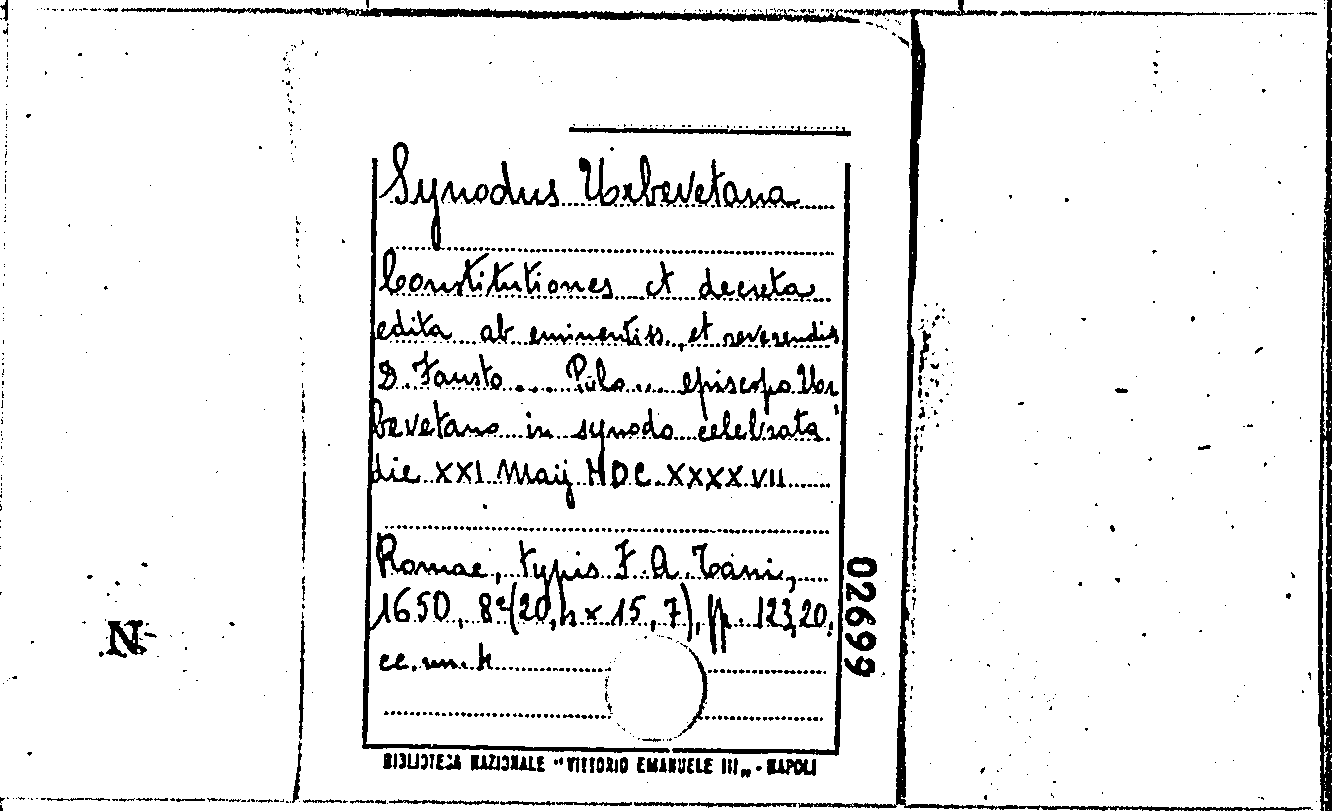 Synodus Urbevetana
Constitutiones et decreta
edita ab eminentiss. et reverendis
D. Fausto... Polo... episcopo Ur
bevetano in synodo celebrata
die XXI Maij MDC.XXXXVII
Romae, typis F. A. Tani,
1650, 8º (20, x 15,7), pp. 123,20,
cc. nn. 4
BIBLIOTECA NAZIONALE "VITTORIO EMANUELE III" - NAPOLI
02699
N-